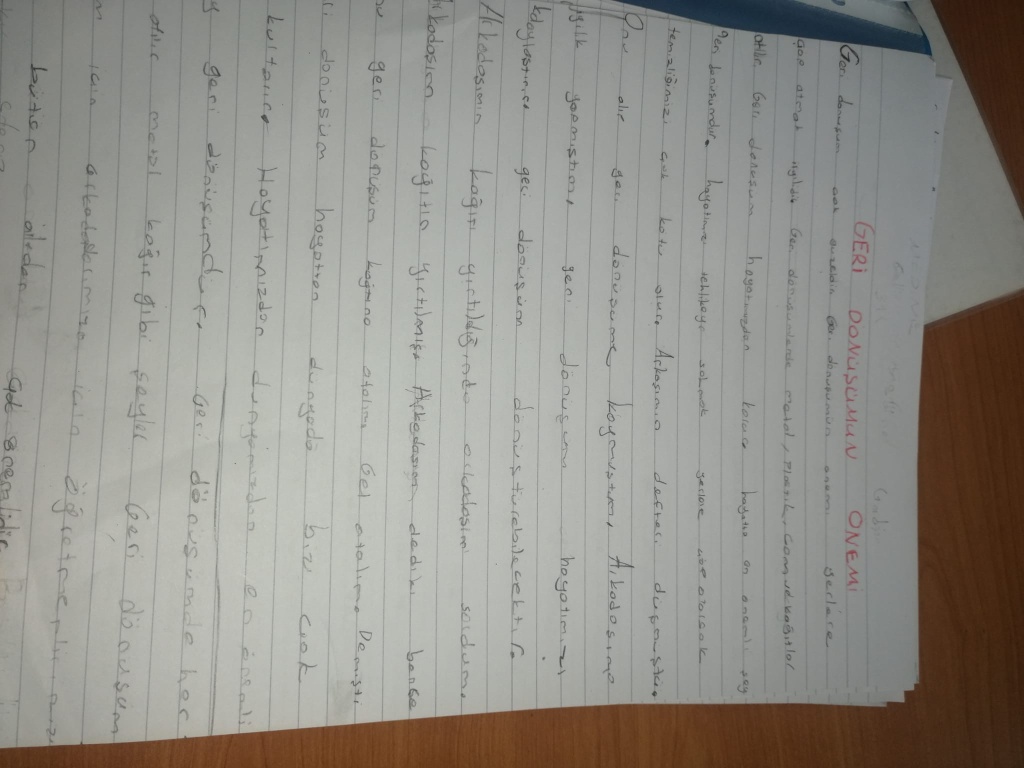 GERİ DÖNÜŞÜMÜN ÖNEMİ
Geri dönüşüm çok önemlidir. Geri dönüşümün önemi yerlere
çöpe atmak Geri dönüşümlerde metal, plastik, cam ve kağıtlar
atılır Geri dönüşüm hayatımızdan korur hayatta en önemli şey
geri dönüşümdür. hayatımızı tehlikeye sokmak yerlere atarak
temizliğimizi çok kötü olur. Arkaşımın defteri düşmüştü.
Onu alıp geri dönüşüme koymuştum. Arkadaşıma
iyilik yapmıştım. geri dönüşüm hayatımızı
kolaylaştırır. geri dönüşüm dönüştürebilecektir.
Arkadaşımın kağıtı yırtıldığında arkadaşım
Arkadaşım kağıtın yırtılmış Arkadaşım dediki bense
geri dönüşüm kağıtına atalım. Gel atalım. Demişti
geri dönüşüm hayattan dünyada bizi çok
kultarır. Hayatımızdan dünyamızdan en önemli
şey geri dönüşümdür. Geri dönüşümde her
metal kağıt gibi şeyler Geri dönüşüm
için arkadaşlarımıza için öğretmenlerimiz
bütün
çok önemlidir